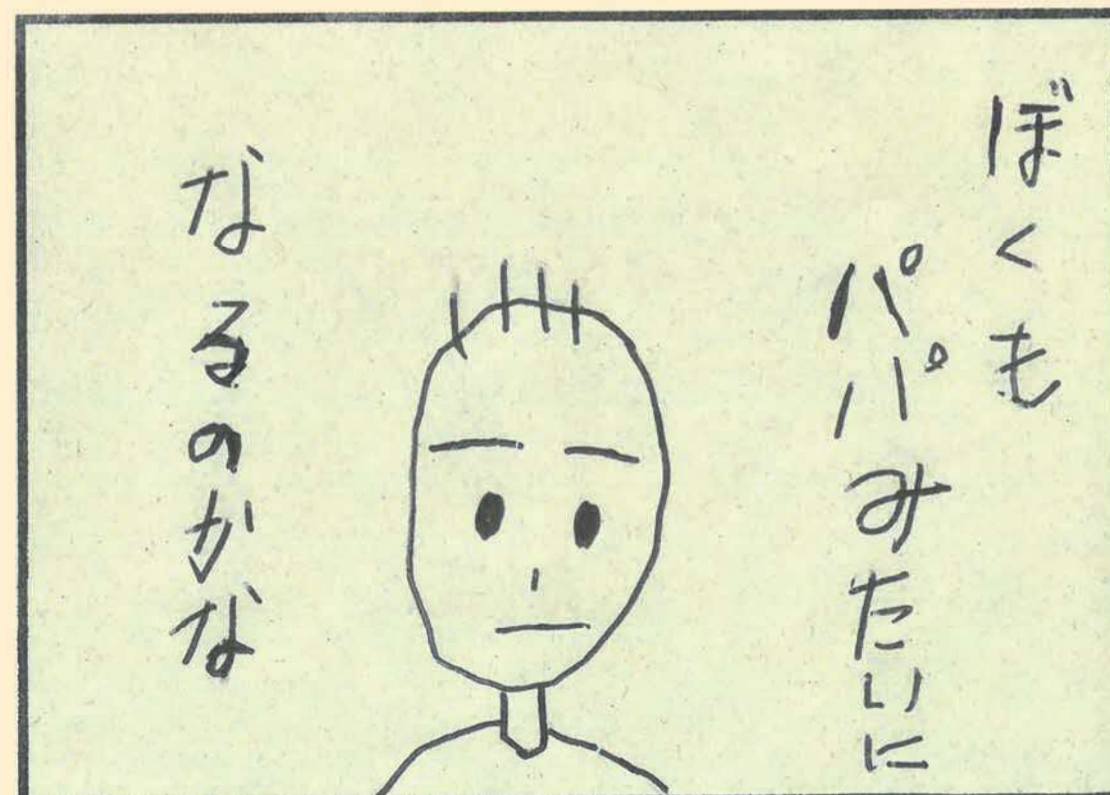 ぼくも
パパみたいに
なるのかな